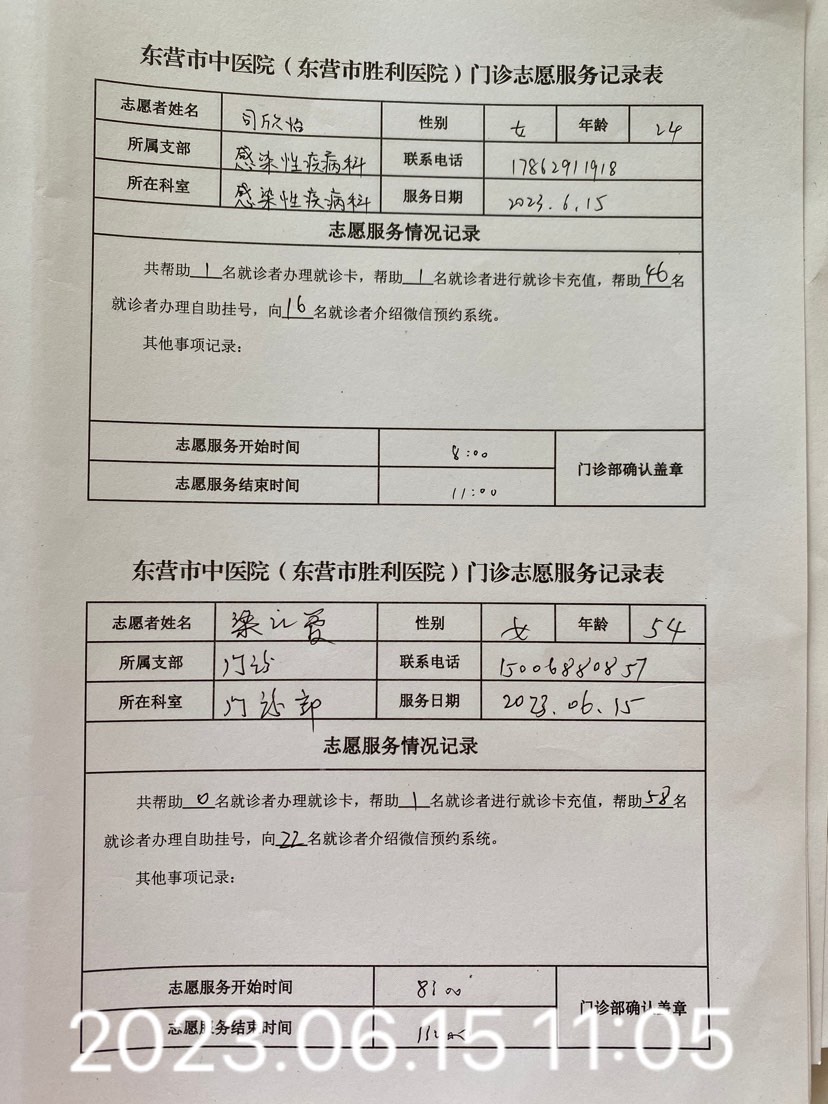 东营市中医院（东营市胜利医院）门诊志愿服务记录表
志愿者姓名 司欣怡 性别 女 年龄 24
所属支部 感染性疾病科 联系电话 17862911918
所在科室 感染性疾病科 服务日期 2023.6.15
志愿服务情况记录
共帮助1名就诊者办理就诊卡，帮助1名就诊者进行就诊卡充值，帮助46名
就诊者办理自助挂号，向16名就诊者介绍微信预约系统。
其他事项记录：
志愿服务开始时间 8:00
门诊部确认盖章
志愿服务结束时间 11:00
东营市中医院（东营市胜利医院）门诊志愿服务记录表
志愿者姓名 梁 性别 女 年龄 54
所属支部 门诊 联系电话 15006880857
所在科室 门诊部 服务日期 2023.06.15
志愿服务情况记录
共帮助0名就诊者办理就诊卡，帮助1名就诊者进行就诊卡充值，帮助58名
就诊者办理自助挂号，向22名就诊者介绍微信预约系统。
其他事项记录：
志愿服务开始时间 8:00
门诊部确认盖章
志愿服务结束时间 11:00
2023.06.15 11:05